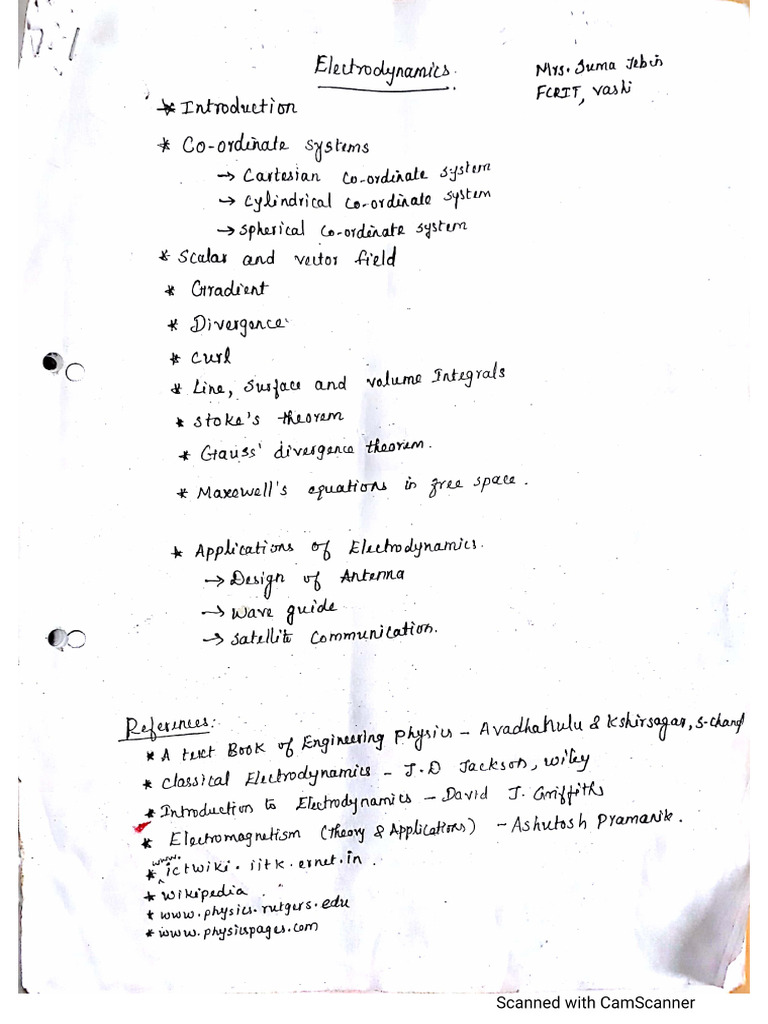 Electrodynamics.
Mrs. Suma
FCRIT, Vashi
* Introduction
* Co-ordinate systems
→ Cartesian Co-ordinate system
→ Cylindrical Co-ordinate system
→ Spherical Co-ordinate system
* Scalar and vector field
* Gradient
* Divergence
* Curl
* Line, Surface and volume Integrals
* Stoke's theorem
* Gauss' divergence theorem.
* Maxewell's equations in free space.
* Applications of Electrodynamics.
→ Design of Antenna
→ Wave guide
→ Satellite Communication.
References:
* A text Book of Engineering Physics - Avadhahulu & Kshirsagar, S-Chand
* Classical Electrodynamics - J.D Jackson, Wiley
* Introduction to Electrodynamics - David J. Griffiths
* Electromagnetism (Theory & Applications) - Ashutosh Pramanik.
* www.ictwiki.iitk.ernet.in.
* Wikipedia.
* www.physics.rutgers.edu
* www.physicspages.com
Scanned with CamScanner